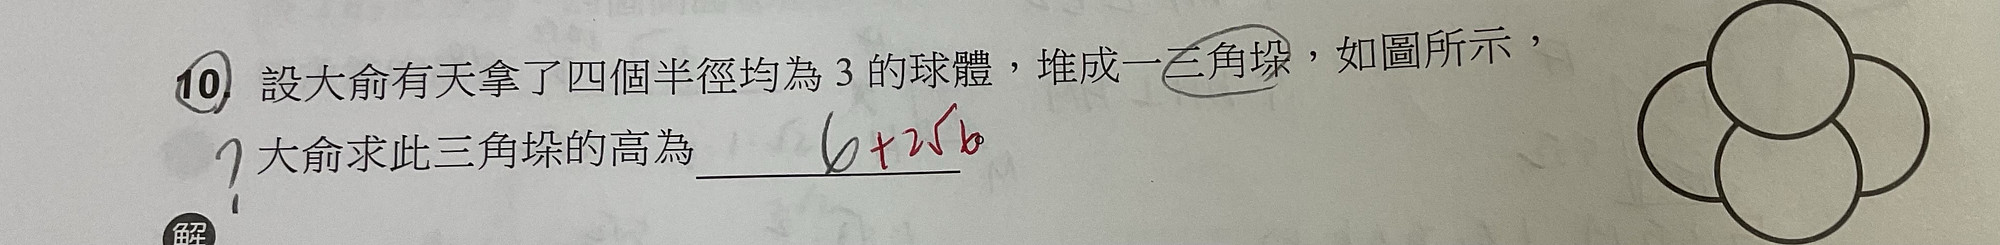 10. 設大俞有天拿了四個半徑均為 3 的球體，堆成一三角垛，如圖所示，
? 大俞求此三角垛的高為 6+2√6
解